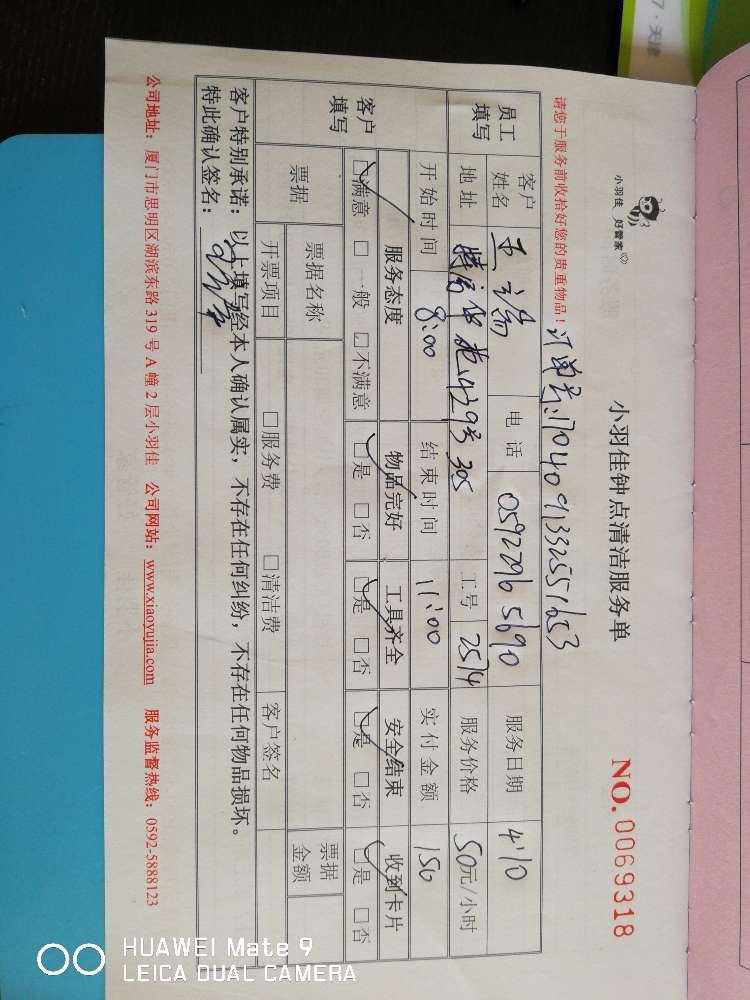 小羽佳 好管家
小羽佳钟点清洁服务单
NO. 0069318
请您于服务前收拾好您的贵重物品！ 订单号:17040913325551653
员工填写 客户姓名 电话 0592296 5690 服务日期 4.10
地址 429号 305 工号 2514 服务价格 50元/小时
开始时间 8:00 结束时间 11:00 实付金额 150
客户填写 服务态度 物品完好 工具齐全 安全结束 收到卡片
满意 一般 不满意 是 否 是 否 是 否 是 否
票据 票据名称 票据金额
开票项目 服务费 清洁费 客户签名
客户特别承诺：以上填写经本人确认属实，不存在任何纠纷，不存在任何物品损坏。
特此确认签名：
公司地址：厦门市思明区湖滨东路 319 号 A 幢 2 层小羽佳 公司网站：www.xiaoyujia.com 服务监督热线：0592-5888123
7·天津
HUAWEI Mate 9
LEICA DUAL CAMERA